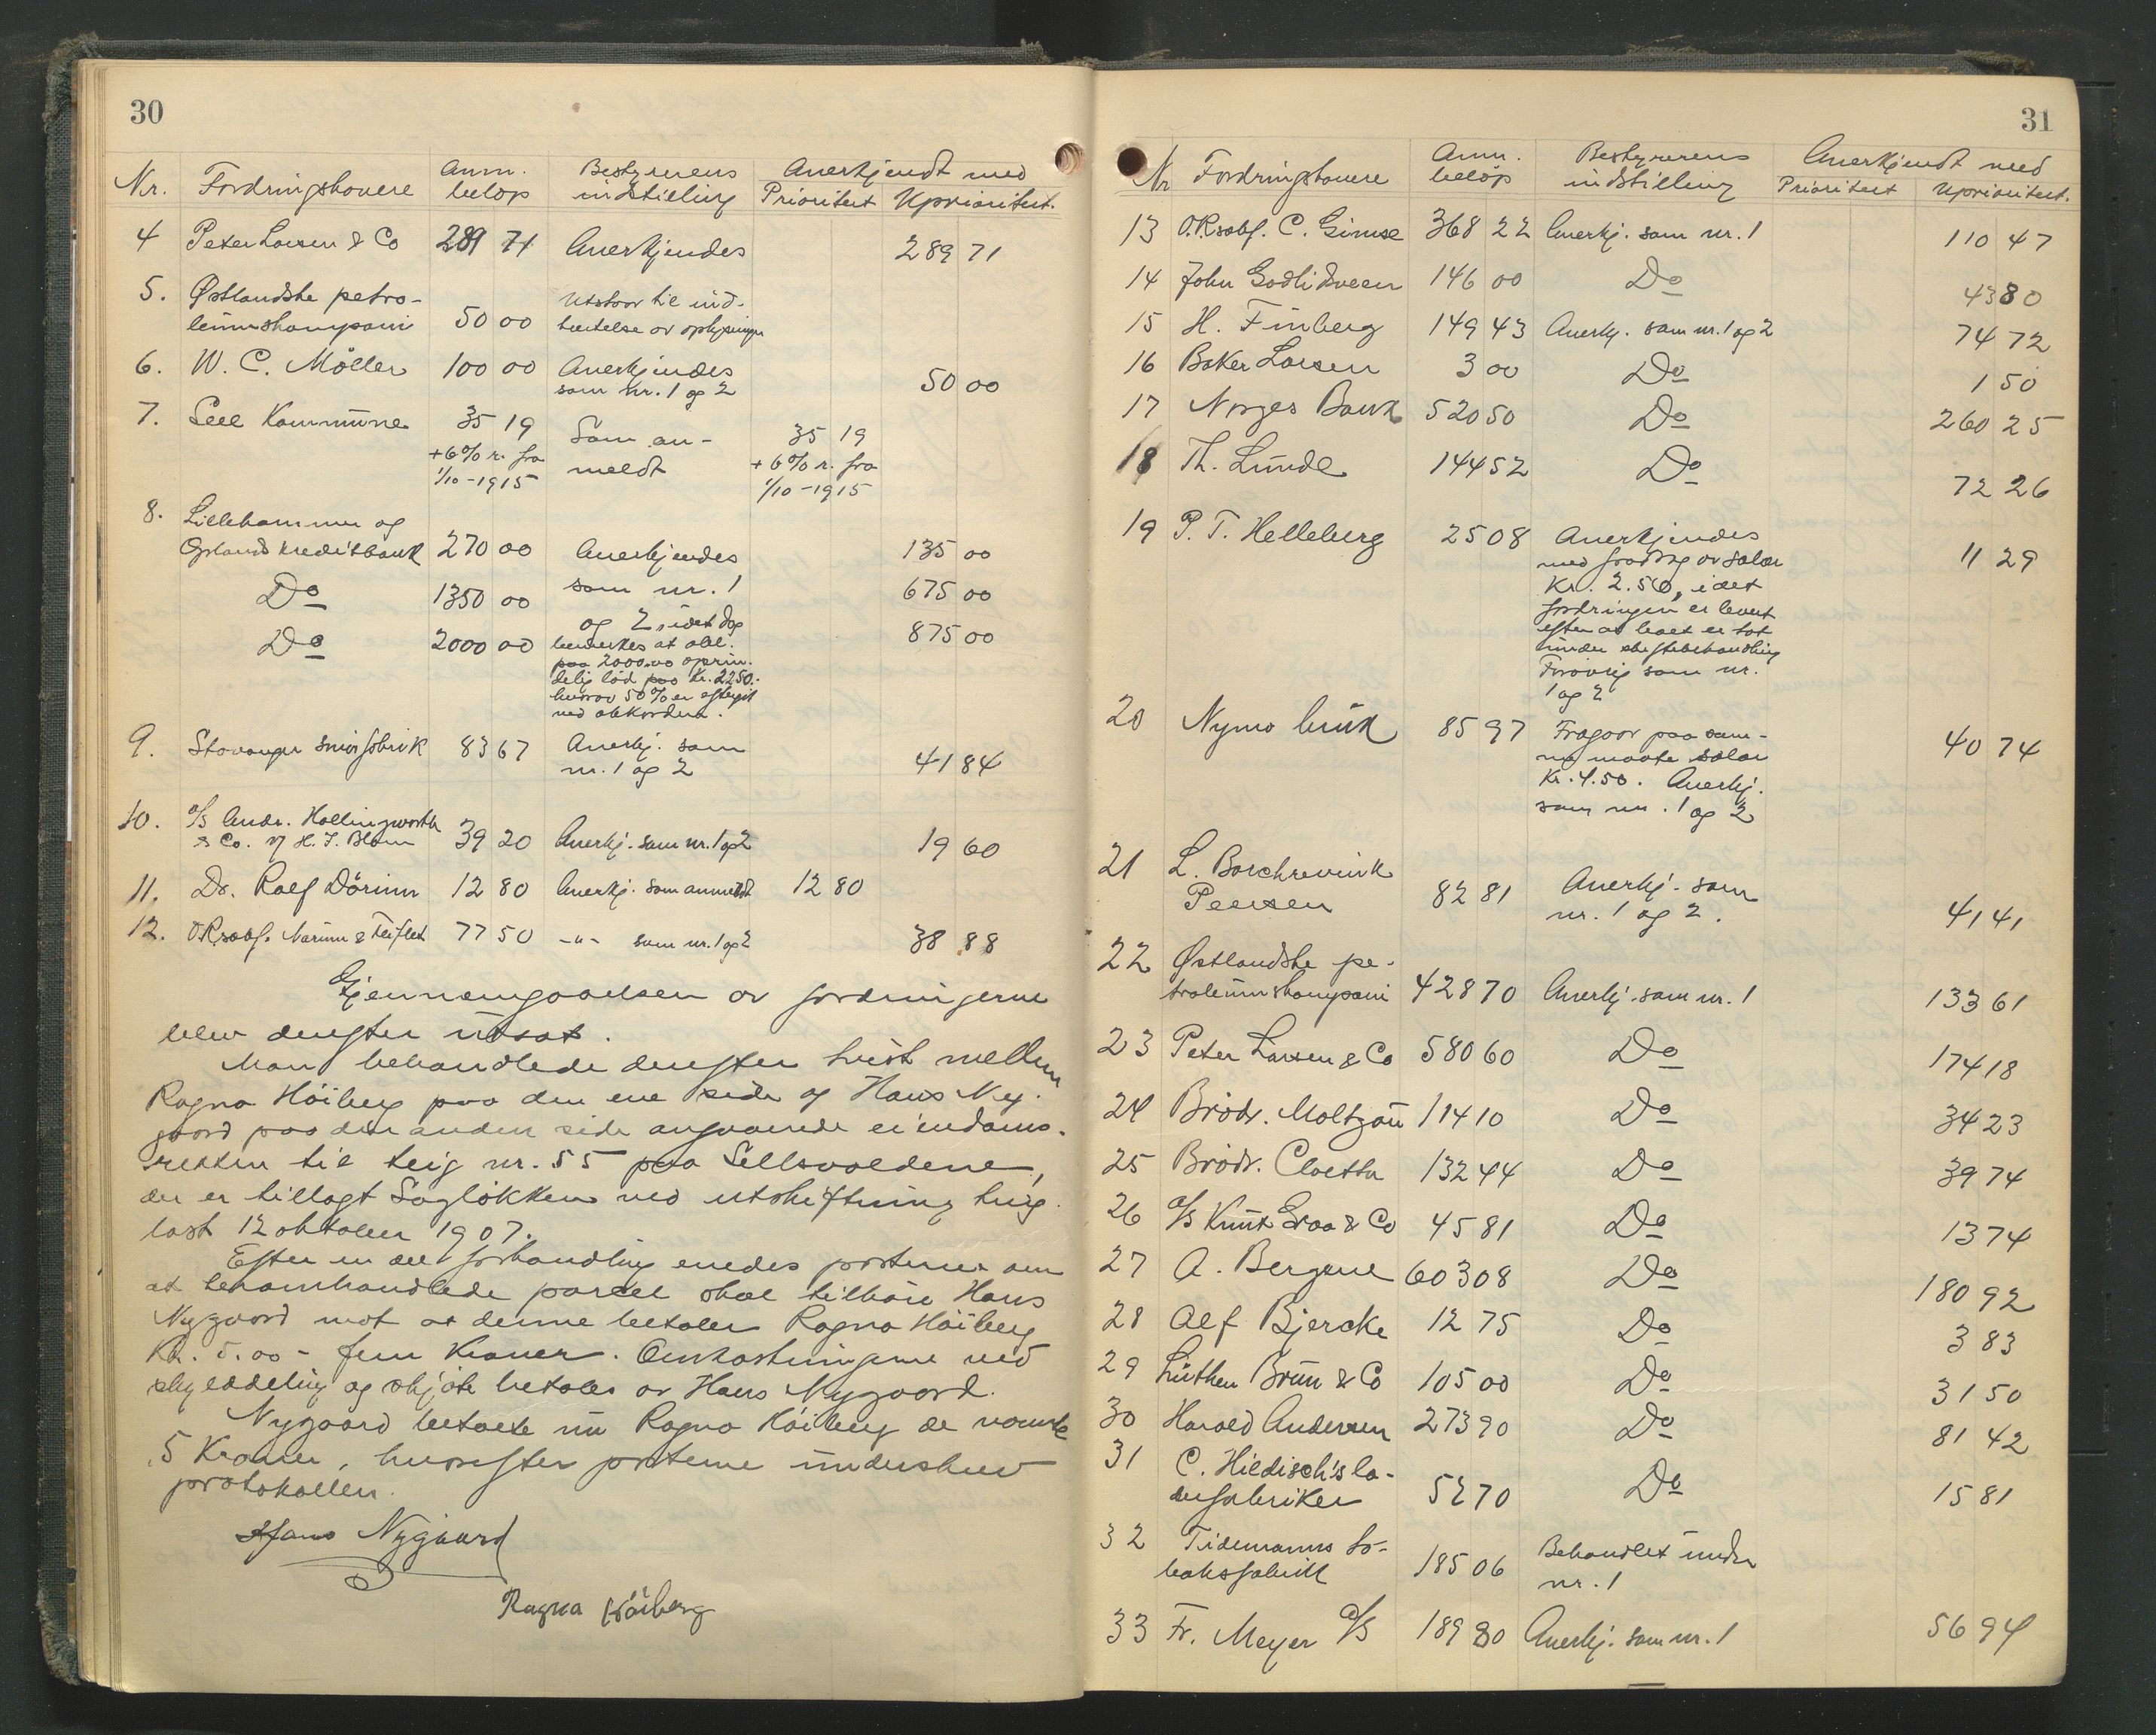 30
Nr. Fordringshavere Anm. beløp Bestyrerens indstilling Anerkjendt med
Prioritert Uprioritert.
4 Peter Larsen & Co 289 71 Anerkjendes 289 71
5. Østlandske petro-
leumskompani 50 00 Utstaar til ind-
hentelse av oplysninger
6. W. C. Møller 100 00 Anerkjendes
som nr. 1 og 2 50 00
7. Sell Kommune 35 19 Som an- 35 19
+6% r. fra meldt +6% r. fra
1/10-1915 1/10-1915
8. Lillehammer og
Oplands kreditbank 270 00 Anerkjendes 135 00
Do 1350 00 som nr. 1 675 00
Do 2000 00 og 2, idet dog 875 00
bemerkes at obl.
paa 2000.00 oprin-
delig lød paa kr. 2250.-
hvorav 50% er eftergit
ved akkorden.
9. Stavanger smørfabrik 83 67 Anerkj. som
nr. 1 og 2 41 84
10. a/s Andr. Hollingworth
& Co. v/ H. J. Blom 39 20 Anerkj. som nr. 1 og 2 19 60
11. Dr. Ralf Dørum 12 80 Anerkj. som anmeldt 12 80
12. O.R.sakf. Narum & Feiflet 77 50 -"- som nr. 1 og 2 38 88
Gjennemgaaelsen av fordringerne
blev derefter utsat.
Man behandlede derefter tvist mellem
Ragna Høiberg paa den ene side og Hans Ny-
gaard paa den anden side angaaende eiendoms-
retten til teig nr. 55 paa Sellsvoldene,
der er tillagt Sagløkken ved utskiftning tingl.
last 12 oktober 1907.
Efter en del forhandling enedes parterne om
at benævnte parcel skal tilhøre Hans
Nygaard mot at denne betaler Ragna Høiberg
Kr. 5.00 - fem Kroner. Omkostningerne ved
skylddeling og skjøte betales av Hans Nygaard.
Nygaard betalte nu Ragna Høiberg de nævnte
5 Kroner, hvorefter parterne underskrev
protokollen.
Hans Nygaard
Ragna Høiberg
31
Nr Fordringshavere Anm. beløp Bestyrerens indstilling Anerkjendt med
Prioritert Uprioritert.
13 O.R.sakf. C. Gimse 368 22 Anerkj. som nr. 1 110 47
14 John Godlidveen 146 00 Do 43 80
15 H. Finberg 149 43 Anerkj. som nr. 1 og 2 74 72
16 Baker Larsen 3 00 Do 1 50
17 Norges Bank 520 50 Do 260 25
18 Th. Lunde 144 52 Do 72 26
19 P. T. Helleberg 25 08 Anerkjendes 11 29
med fradrag av salær
Kr. 2.50, idet
fordringen er levert
efter at boet er tat
under skiftebehandling
Forøvrig som nr.
1 og 2
20 Nymo bruk 85 97 Fragaar paa sam- 40 74
me maate salær
Kr. 4.50. Anerkj.
som nr. 1 og 2
21 L. Borchrevink
Peersen 82 81 Anerkj. som
nr. 1 og 2. 41 41
22 Østlandske pe-
troleumskompani 428 70 Anerkj. som nr. 1 133 61
23 Peter Larsen & Co 580 60 Do 174 18
24 Brødr. Moltzau 114 10 Do 34 23
25 Brødr. Cloetta 132 44 Do 39 74
26 a/s Knut Graa & Co 45 81 Do 13 74
27 A. Bergene 603 08 Do 180 92
28 Alf Bjercke 12 75 Do 3 83
29 Luthen Brun & Co 105 00 Do 31 50
30 Harald Andersen 273 90 Do 81 42
31 C. Hildisch's la-
derfabriker 52 70 Do 15 81
32 Tidemanns to-
baksfabrik 185 06 Behandlet under
nr. 1
33 Fr. Meyer a/s 189 80 Anerkj. som nr. 1 56 94